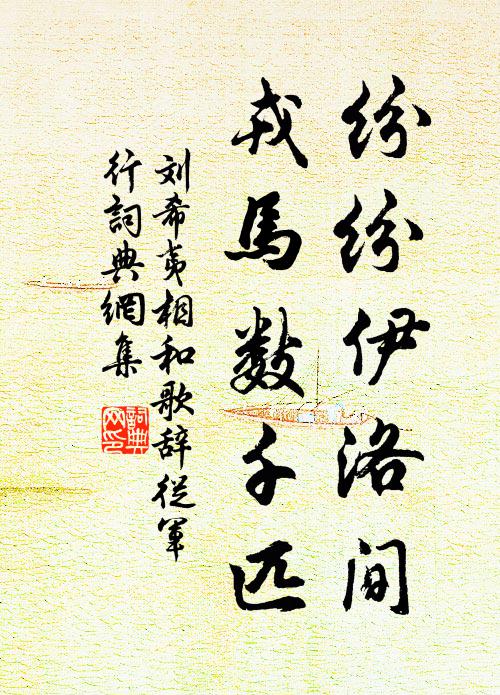 纷纷伊洛间
戎馬数千匹
刘希夷相和歌辞從軍
行詞典網集
詞典网印